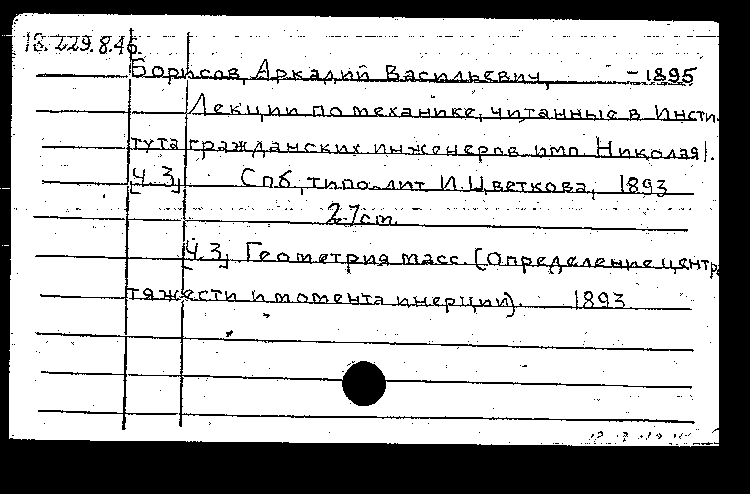 18.229.8.46.
Борисов, Аркадий Васильевич, -1895
Лекции по механике, читанные в Инсти
тута гражданских инженеров имп. Николая I.
[Ч. 3] Спб, типо-лит. И. Цветкова, 1893
27cm.
[Ч. 3] Геометрия масс. (Определение центра
тяжести и момента инерции). 1893